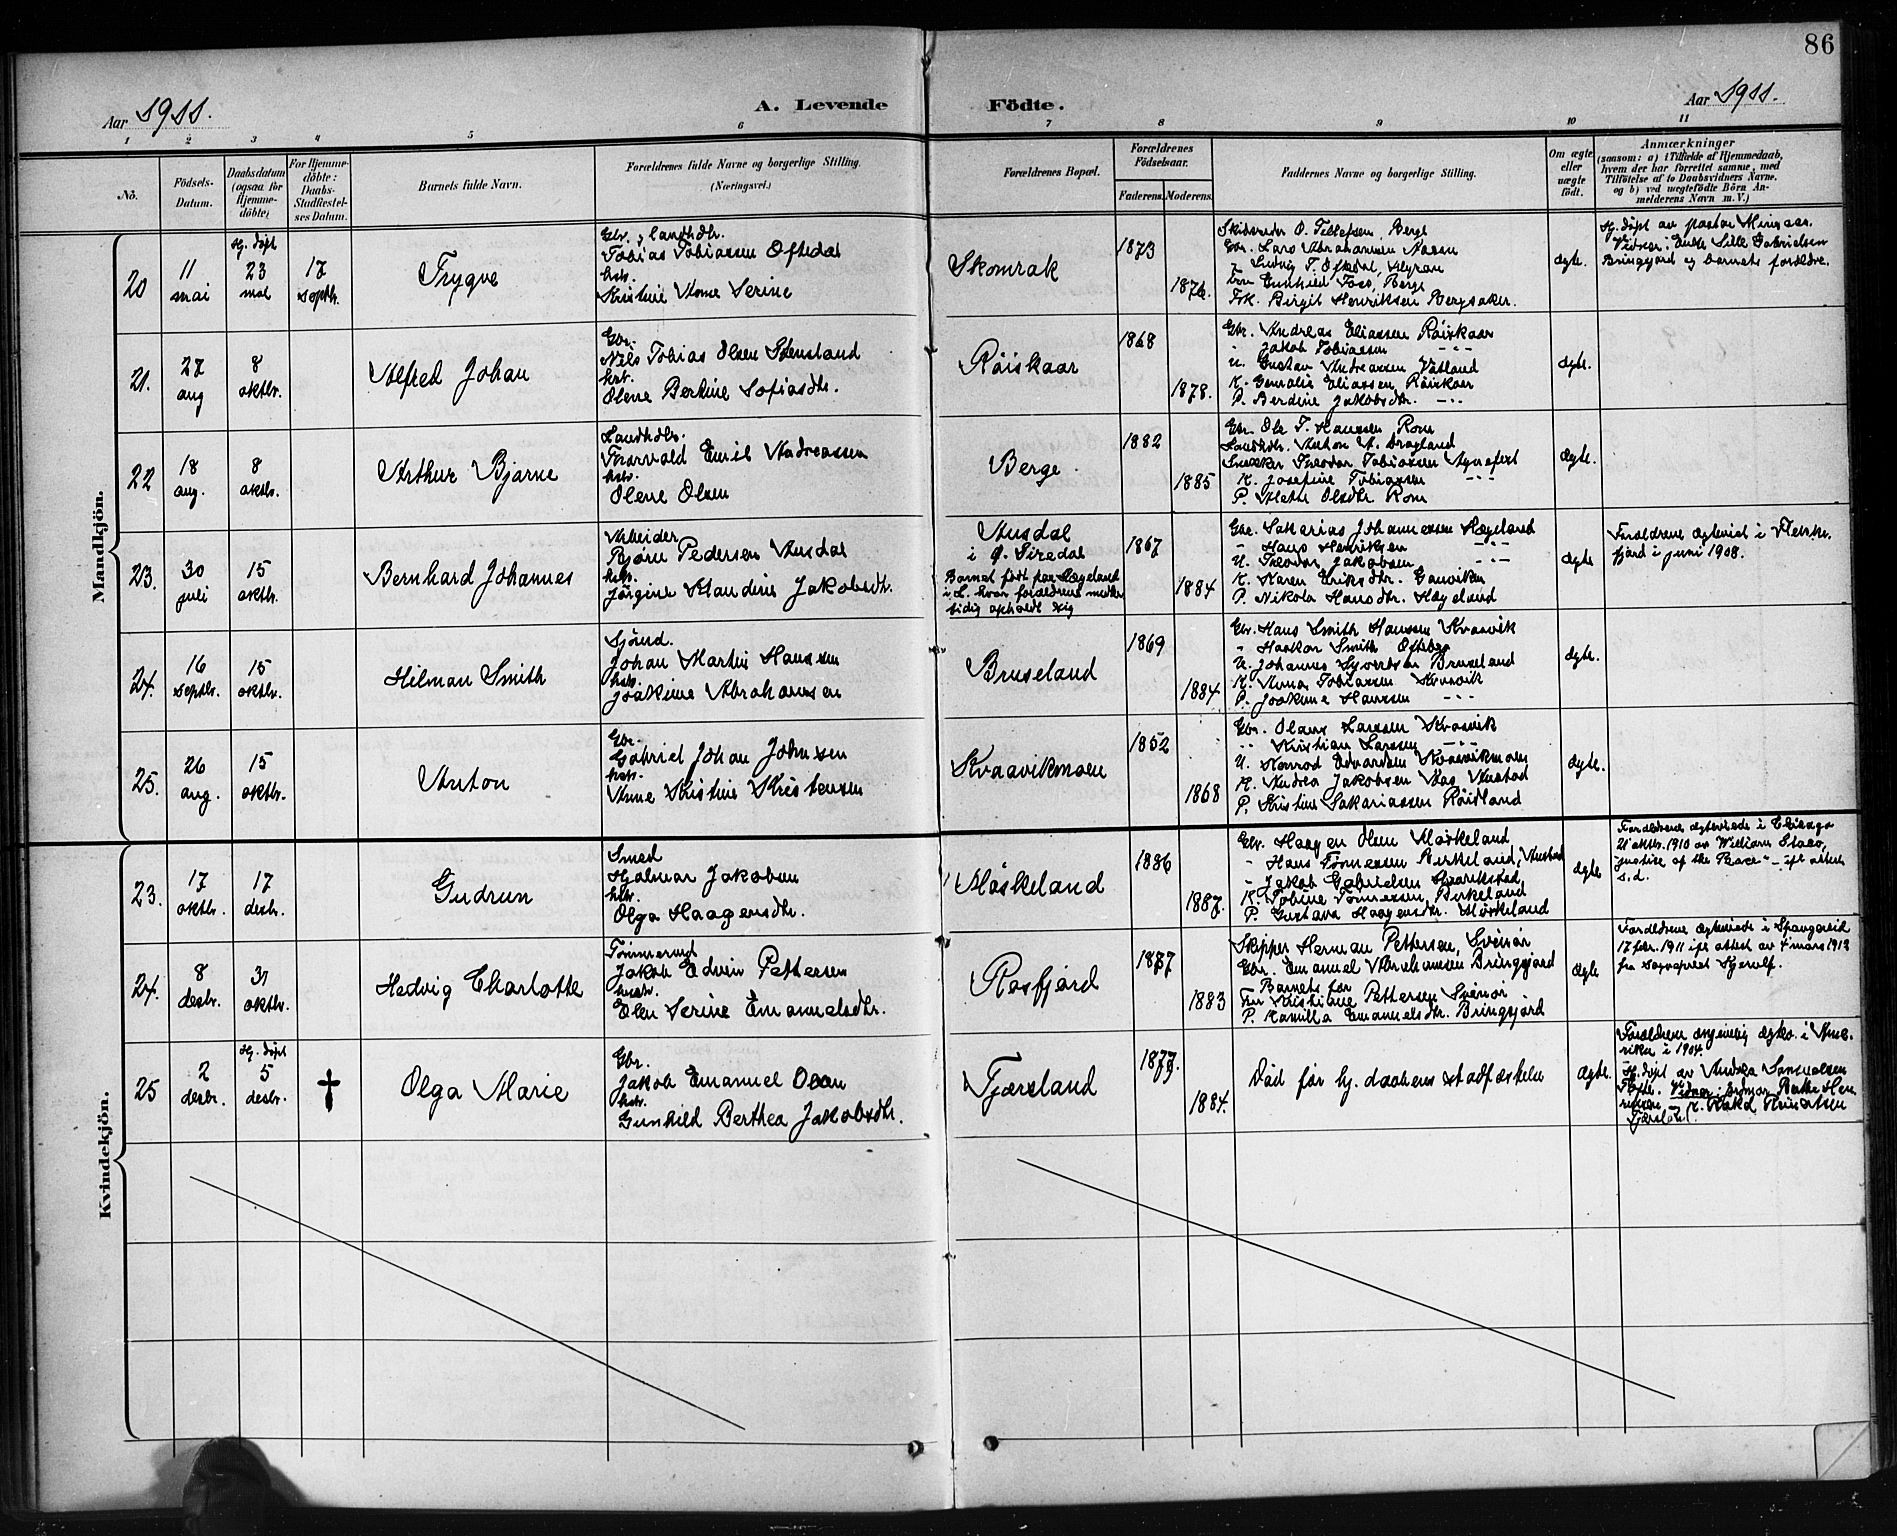 86
Aar 1911.
A. Levende
Födte.
Aar 1911.
1 2 3 4 5 6 7 8 9 10 11
No.
Födsels-
Datum.
Daabsdatum
(ogsaa for
Hjemme-
döbte)
For Hjemme-
döbte:
Daabs-
Stadfæstel-
ses Datum.
Barnets fulde Navn.
Forældrenes fulde Navne og borgerlige Stilling.
(Næringsvei.)
Forældrenes Bopæl.
Forældrenes
Födselsaar.
Faderens. Moderens.
Faddernes Navne og borgerlige Stilling.
Om ægte
eller
uægte
födt.
Anmærkninger
(saasom: a) i Tilfælde af Hjemmedaab,
hvem der har forrettet samme, med
Tilföielse af to Daabsvidners Navne.
og b) ved uægtefödte Börn An-
melderens Navn m. V.)
Mandkjön.
20
11
mai
Hj. døpt
23
mai
17
septbr.
Trygve
Gbr., landhdlr.
Tobias Tobiassen Oftedal
hst.
Kristine Anne Serine
Skomrak
1873
1876.
O. Tellefsen, Berge
Gbr. Lars Abrahamsen Aasen
T. Oftedal,
Gunhild Foss, Berge
Frk. Birgit Henriksen Bergsaker.
ægte.
Hj. døpt av pastor
Vidner: Enke Sille Gabrielsen
Bringsjord og barnets forældre.
21.
27
aug
8
oktbr.
Alfred Johan
Gbr.
Nils Tobias Olsen Stensland
hst.
Olene Bertine Sofiasdtr.
Röiskaar
1868
1878.
Gbr. Andreas Eliassen Röiskaar
" Jakob Tobiassen -"-
U. Gustav Andreassen Vatland
K. Eliassen Röiskaar
P. Berdine Jakobsdtr. -"-
ægte.
22
18
aug.
8
oktbr.
Arthur Bjarne
Landhdlr.
Torvald Emil Andreassen
hst.
Olene Olsen
Berge
1882
1885
Gbr. Ole T. Hanssen Rom
Landhdlr. Anton A. Dragland
Snekker Theodor Tobiassen Agnefest
K. Josefine Tobiassen -"-
P. Mette Olsdtr Rom
ægte.
23.
30
juli
15
oktbr.
Bernhard Johannes
Arbeider
Bjørn Pedersen Ausdal
hst.
Jörgine Mandine Jakobsdtr.
Ausdal
i Ö. Siredal
Barnet født paa Hægeland
i L. hvor forældrene midler-
tidig opholdt sig
1867
1884
Gbr. Sakarias Johannessen Hægeland
" Hans Henriksen -"-
U. Theodor Jakobsen -"-
K. Karen Eriksdtr.
P. Nikola Hansdtr. Hægeland
ægte
Forældrene ægteviet i Flekke-
fjord i juni 1908.
24.
16
septbr.
15
oktbr.
Hilman Smith
Sjömd.
Johan Martin Hanssen
hst.
Joakime Abrahamsen
Bruseland
1869
1884
Gbr. Hans Smith Hanssen Kvaavik
" Haakon Smith Ofteberg
U. Johannes Syvertsen Bruseland
K. Anna Tobiassen Kvaavik
P. Joakime Hanssen -"-
ægte.
25.
26
aug.
15
oktbr.
Anton
Gbr.
Gabriel Johan Johnsen
hst.
Anne Kristine Kristensen
Kvaavikmoen
1852
1868
Gbr. Olaus Larssen Kvaavik
" Kristian Larssen -"-
U. Konrad Edvardsen Kvaavikmoen
K. Andrea Jakobsen Austad
P. Kristine Sakariassen Röidland
ægte.
Kvindekjön.
23.
17
oktbr.
17
desbr.
Gudrun
Smed
Hjalmar Jakobsen
hst.
Olga Haagensdtr.
Möskeland
1886
1887.
Gbr. Haagen Olsen Möskeland
" Hans Tønnessen Birkeland, Austad
" Jakob Gabrielsen
K. Tobine Tønnessen, Birkeland
P. Gustava Haagensdtr. Möskeland
ægte
Forældrene ægteviede i Chicago
21 oktbr. 1910 av William
"justice of the Peace" - ift attest
s.d.
24.
8
desbr.
31
oktbr.
Hedvig Charlotte
Tömmermd
Jakob Edvin Pettersen
hustr.
Elen Serine Emanuelsdtr.
Rosfjord
1877
1883
Skipper Herman Pettersen, Svinör
Gbr. Emanuel Abrahamsen Bringsjord
Barnets far
Fru Kristiane Pettersen Svinör
P. Kamilla Emanuelsdtr. Bringsjord
ægte
Forældrene ægteviede i Spangereid
17 febr. 1911 ift attest av 4 mars 1912
fra sogneprest
25
2
desbr.
Hj. døpt
5
desbr.
†
Olga Marie
Gbr.
Jakob Emanuel Olsen
hst.
Gunhild Berthea Jakobsdtr.
Tjærsland
1877
1884.
Död för hj. daabens stadfæstelse
ægte.
Forældrene angivelig ægtev. i Ame-
rika i 1904.
Hj. døpt av Andrea Samuelsen
Vidner: jordmor Berthe Hen-
riksen
Tjærsland.